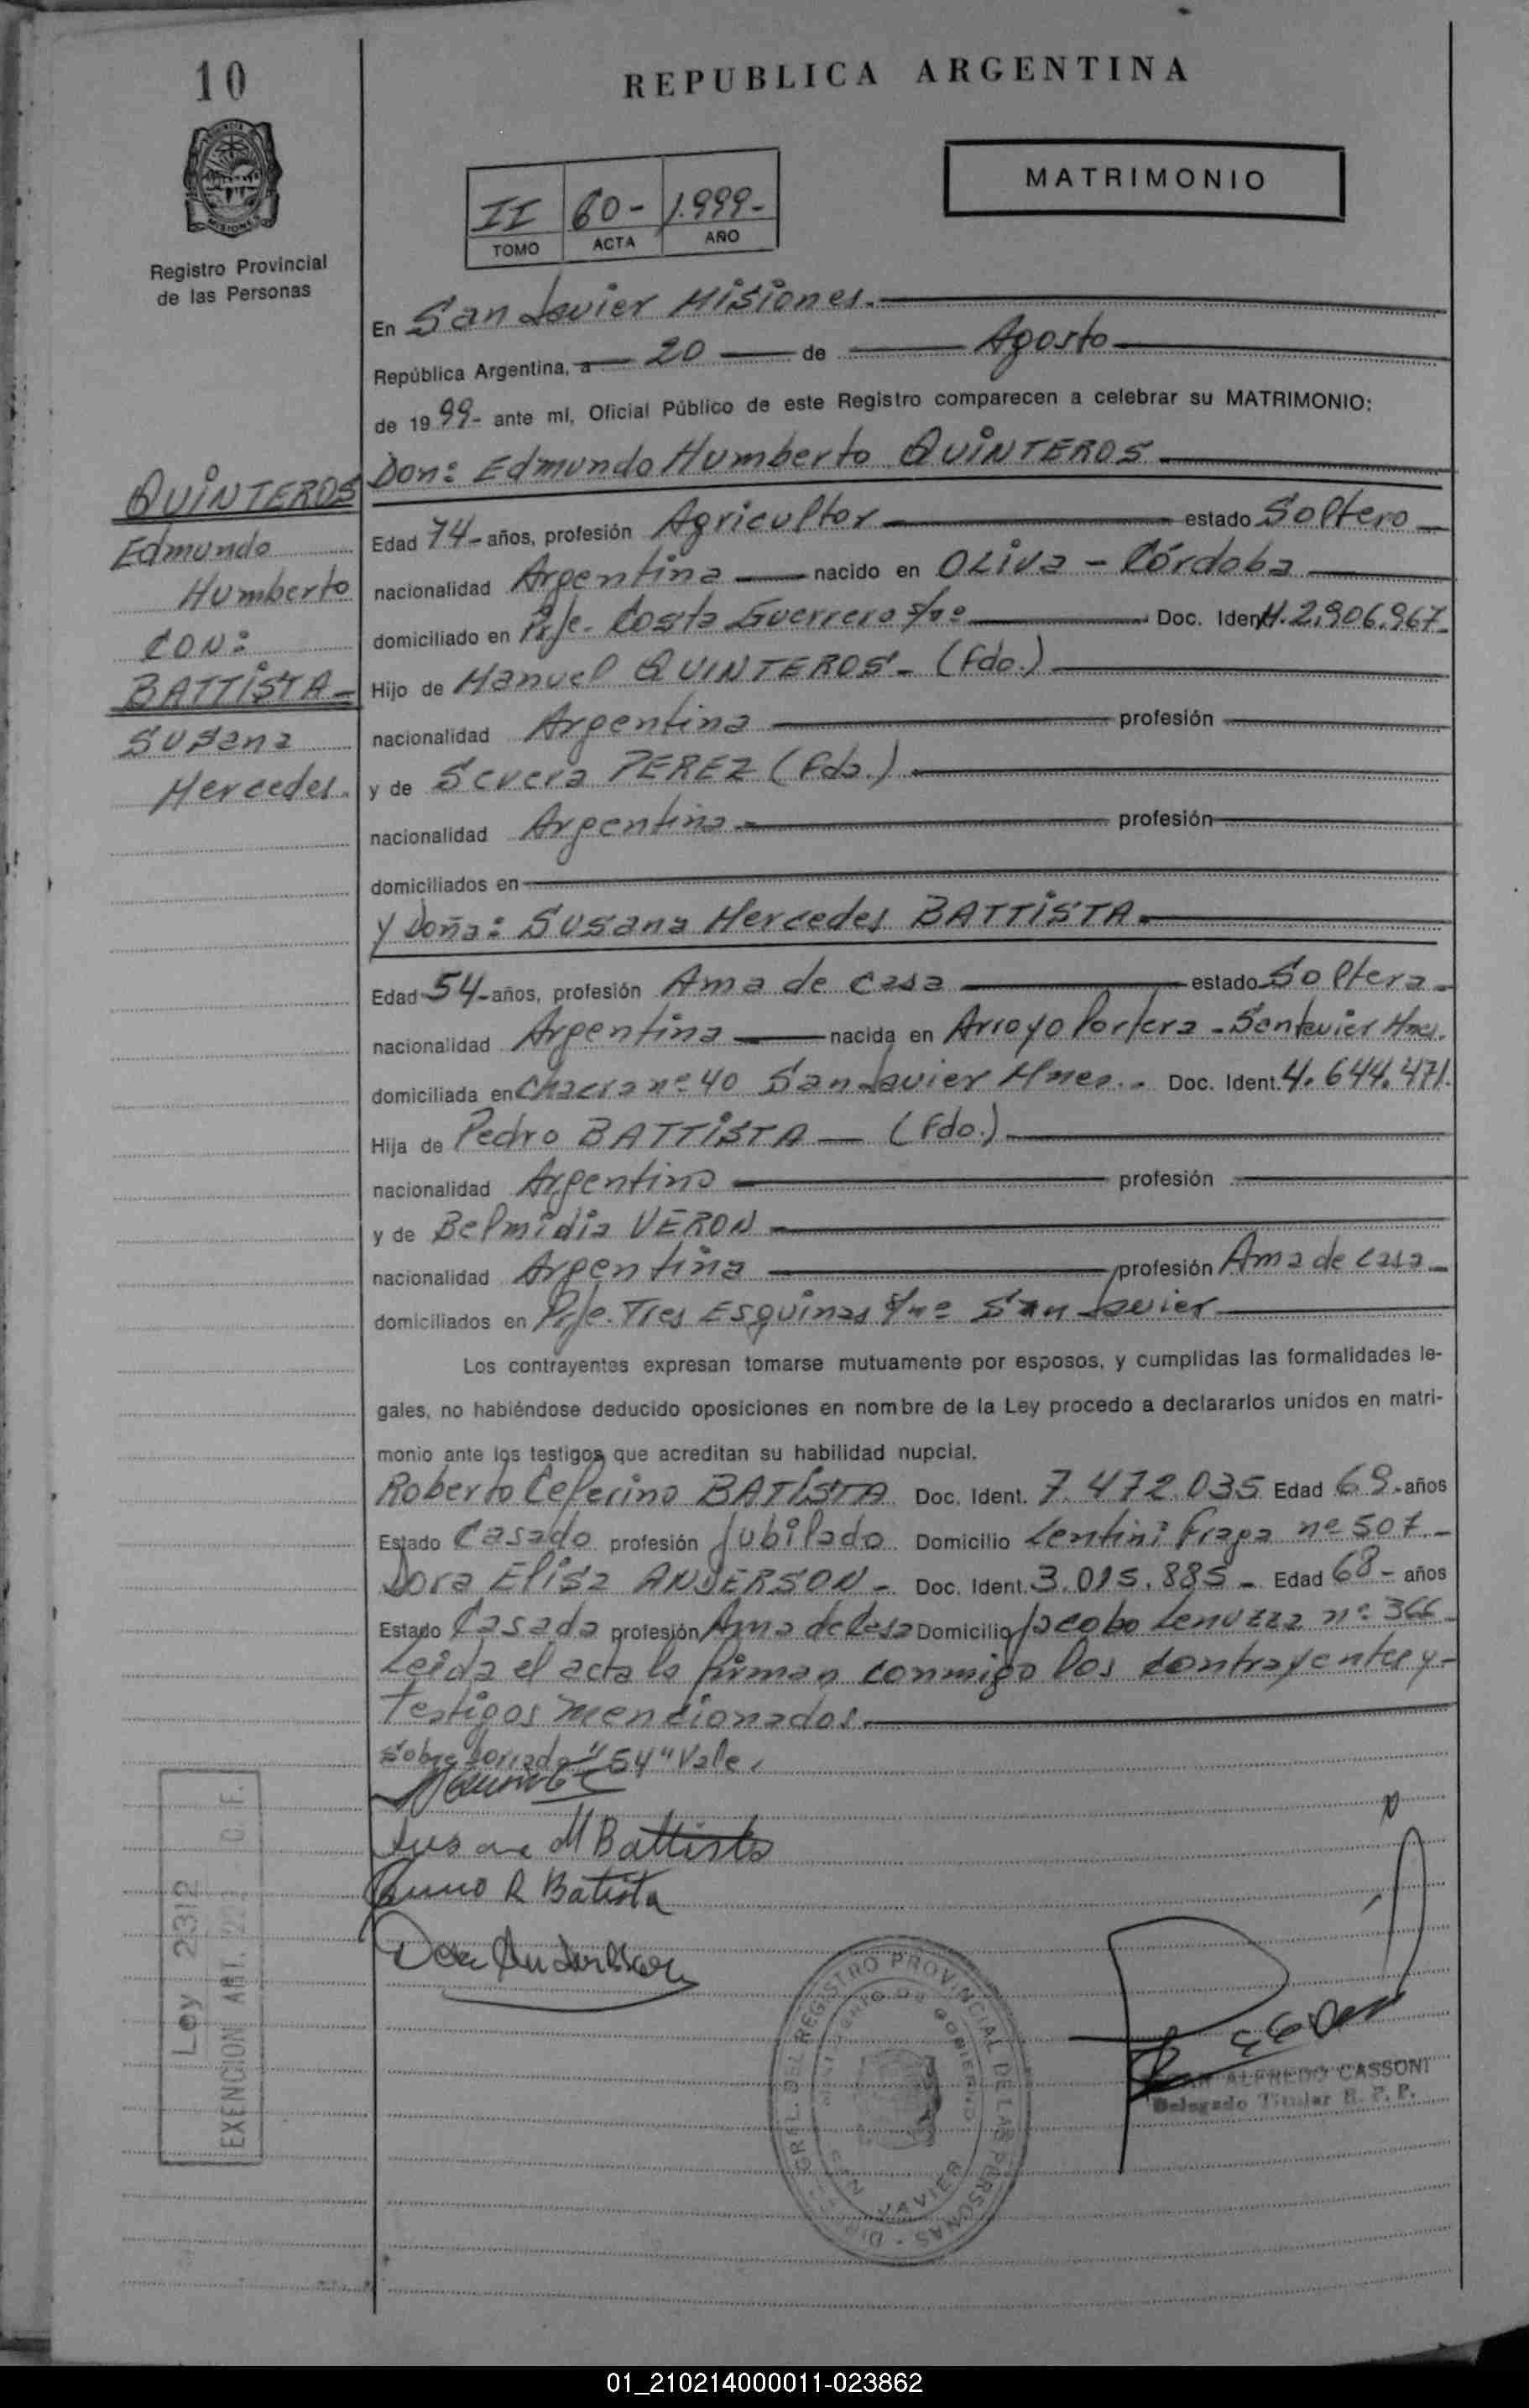 10
REPUBLICA ARGENTINA
MATRIMONIO
II 60- 1.999-
TOMO ACTA AÑO
Registro Provincial
de las Personas
En San Javier Misiones.
República Argentina, a 20 de Agosto
de 1999- ante mí, Oficial Público de este Registro comparecen a celebrar su MATRIMONIO:
QUINTEROS
Edmundo
Humberto
CON:
BATTISTA-
Susana
Mercedes.
Don: Edmundo Humberto QUINTEROS
Edad 74- años, profesión Agricultor estado Soltero
nacionalidad Argentina nacido en OLiva - Córdoba
domiciliado en Pje. Costa Guerrero s/nº Doc. Ident. 2.906.967-
Hijo de Manuel QUINTEROS - (fdo.)
nacionalidad Argentina profesión
y de Severa PEREZ (fda.)
nacionalidad Argentina profesión
domiciliados en
y Doña: Susana Mercedes BATTISTA.
Edad 54- años, profesión Ama de casa estado Soltera-
nacionalidad Argentina nacida en Arroyo Portera - San Javier Mnes.
domiciliada en Chacra nº 40 San Javier Mnes. - Doc. Ident. 4.644.471.
Hija de Pedro BATTISTA - (fdo.)
nacionalidad Argentino profesión
y de Belmidia VERON
nacionalidad Argentina profesión Ama de casa-
domiciliados en Pje. Tres Esquinas s/nº San Javier
Los contrayentes expresan tomarse mutuamente por esposos, y cumplidas las formalidades le-
gales, no habiéndose deducido oposiciones en nombre de la Ley procedo a declararlos unidos en matri-
monio ante los testigos que acreditan su habilidad nupcial.
Roberto Ceferino BATISTA Doc. Ident. 7.472.035 Edad 69.-años
Estado Casado profesión Jubilado Domicilio Lentini Fraga nº 507-
Dora Elisa ANDERSON- Doc. Ident. 3.015.885- Edad 68- años
Estado Casada profesión Ama de Casa Domicilio Jacobo nº 366
Leida el acta la firman conmigo los contrayentes y-
testigos mencionados.
Sobre borrado "54" Vale.
Susana M Battista
R Batista
Dora Anderson
Ley 2312
EXENCION ART. 221 C. F.
DIREC. GRAL. DEL REGISTRO PROVINCIAL DE LAS PERSONAS
MINISTERIO DE GOBIERNO
SAN JAVIER
ALFREDO CASSONI
Delegado Titular R. P. P.
01_210214000011-023862